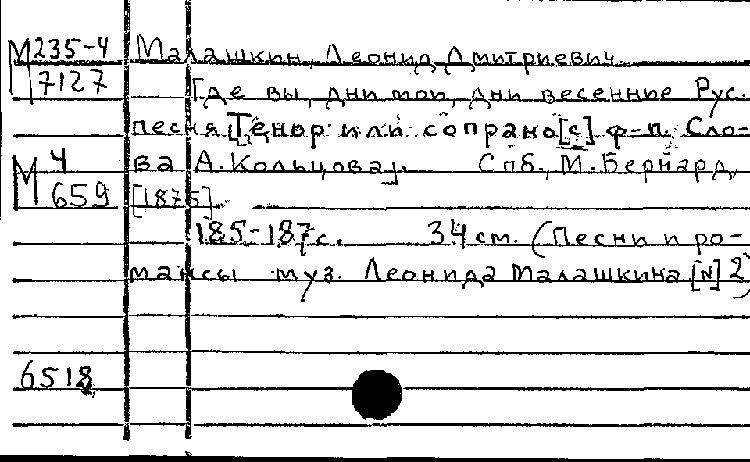 М 235-4
7127
Малашкин, Леонид Дмитриевич
Где вы, дни мои, дни весенние Рус.
песня [Тенор или сопрано [с] ф-п. Сло-
М 4
659
ва А. Кольцова]. Спб., М. Бернард,
[1875]
185-187 с. 34 см. (Песни и ро-
мансы муз. Леонида Малашкина [N] 2)
6518